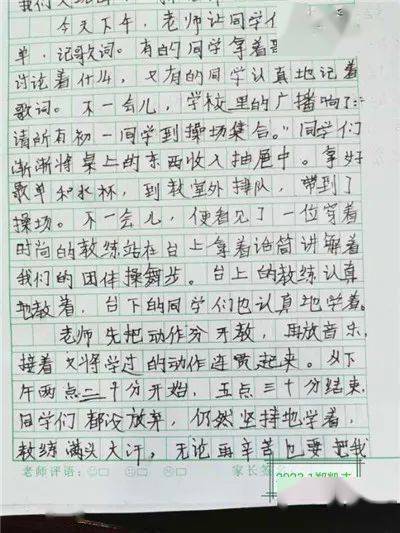 今天下午，老师让同学们
单，记歌词。有的同学拿着
讨论着什么，又有的同学认真地记着
歌词。不一会儿，学校里的广播响了：
请所有初一同学到操场集合。”同学们
渐渐将桌上的东西收入抽屉中。拿好
歌单和水杯，到教室外排队，带到了
操场。不一会儿，便看见了一位穿着
时尚的教练站在台上拿着话筒讲解着
我们的团体操舞步。台上的教练认真
地教着，台下的同学们也认真地学着。
老师先把动作分开教，再放音乐，
接着又将学过的动作连贯起来。从下
午两点二十分开始，五点三十分结束，
同学们都没放弃，仍然坚持地学着，
教练满头大汗，无论再辛苦也要把我
老师评语： 家长签